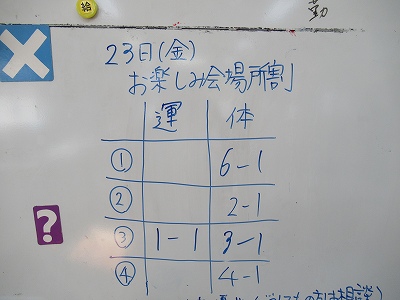 給
勤
23日(金)
お楽しみ会場所割
運 体
① 6-1
② 2-1
?
③ 1-1 3-1
④ 4-1
相談)